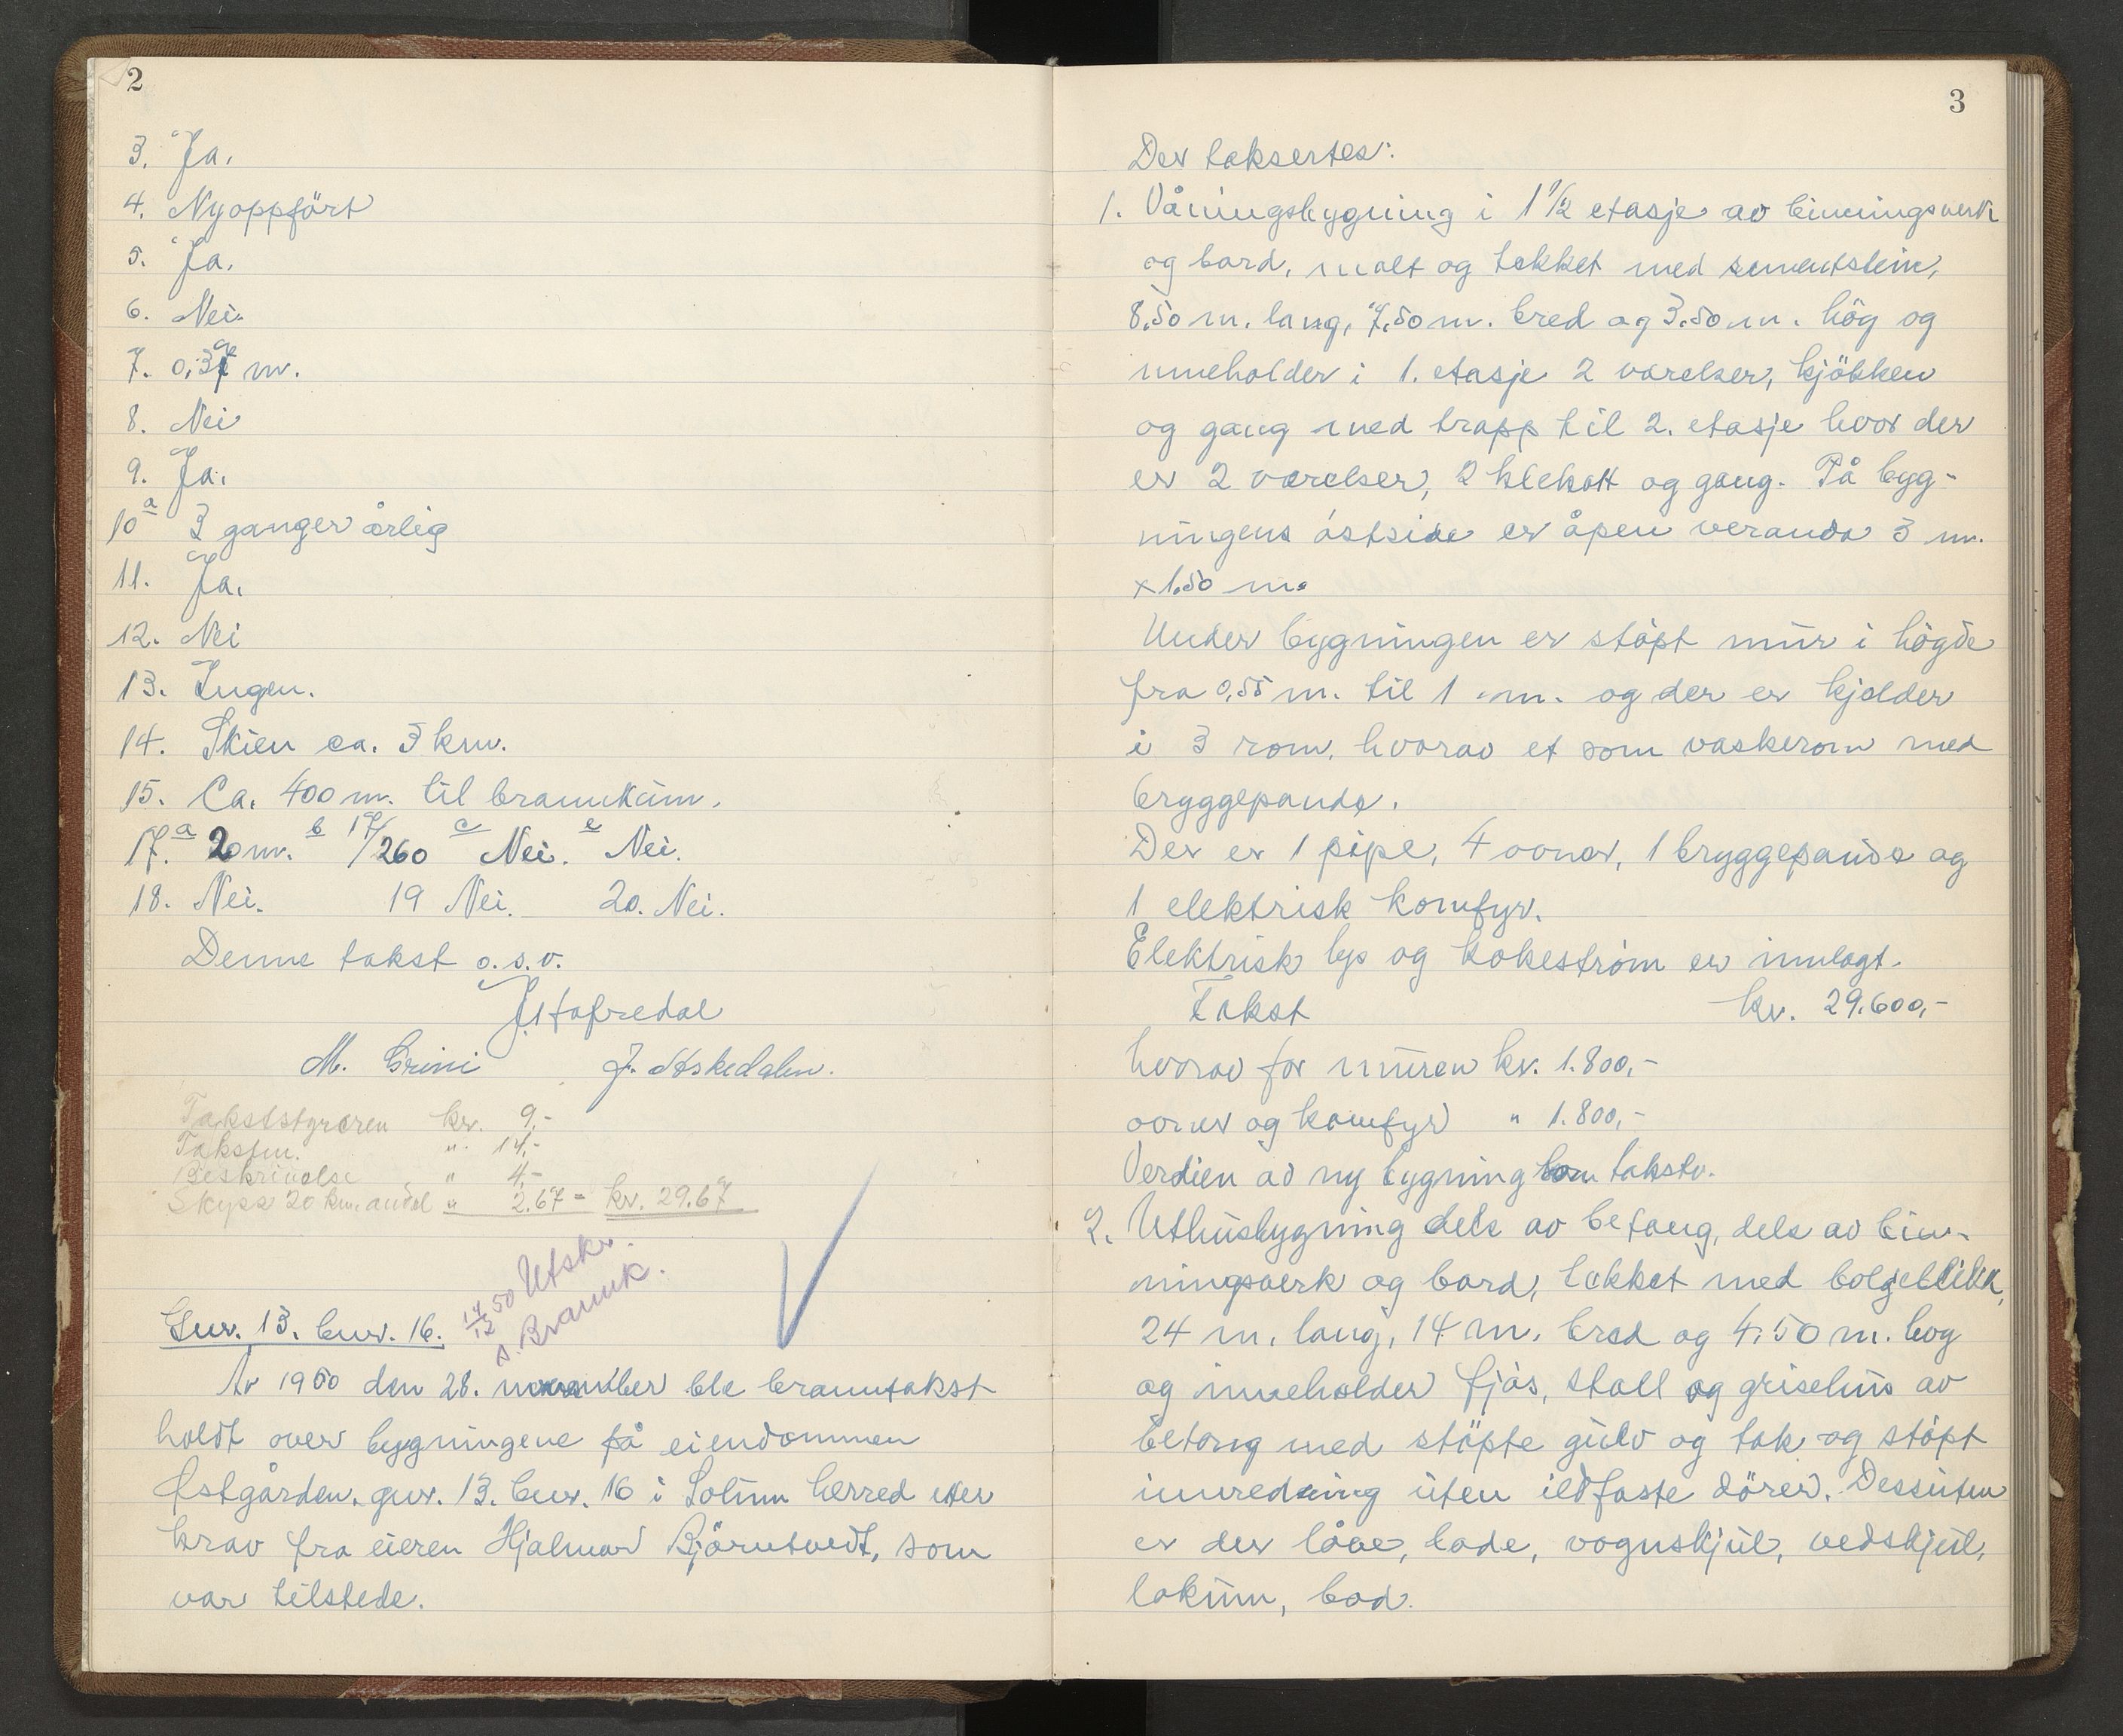 2
3. Ja.
4. Nyoppfört
5. Ja.
6. Nei.
7. 0,37 m.
8. Nei
9. Ja.
10 a 3 ganger årlig
11. Ja.
12. Nei
13. Ingen.
14. Skien ca. 3 km.
15. Ca. 400 m. til brannkum.
17. a 20 m. b 17/260 c Nei. e Nei.
18. Nei. 19 Nei. 20. Nei.
Denne takst o.s.v.
M. Grini
Takststyreren kr. 9,-
Takstm. " 14,-
Beskrivelse " 4,-
Skyss 20 km. andel " 2.67 = kr. 29.67
14/12 50 Utskr.
s. Brannk.
Gnr. 13. bnr. 16.
År 1950 den 28. november ble branntakst
holdt over bygningene på eiendommen
Østgården, gnr. 13. bnr. 16 i Solum herred etter
krav fra eieren Hjalmar Björntvedt, som
var tilstede.
3
Der taksertes:
1. Våningsbygning i 1 1/2 etasje av binningsverk
og bord, malt og tekket med sementstein,
8,50 m. lang, 7,50 m. bred og 3.50 m. hög og
inneholder i 1. etasje 2 værelser, kjökken
og gang med trapp til 2. etasje hvor der
er 2 værelser, 2 klekott og gang. På byg-
ningens östside er åpen veranda 3 m.
x 1.50 m.
Under bygningen er stöpt mur i högde
fra 0,55 m. til 1 m. og der er kjelder
i 3 rom, hvorav et som vaskerom med
bryggepande.
Der er 1 pipe, 4 ovner, 1 bryggepande og
1 elektrisk komfyr.
Elektrisk lys og kokeström er innlagt.
Takst kr. 29.600,-
hvorav for muren kr. 1.800,-
ovner og komfyr " 1.800,-
Verdien av ny bygning som takstv.
2. Uthusbygning dels av betong, dels av bin-
ningsverk og bord, tekket med bölgeblikk,
24 m. lang, 14 m. bred og 4.50 m. hög
og inneholder fjös, stall og grisehus av
betong med stöpte gulv og tak og stöpt
innredning uten ildfaste dörer. Dessuten
er der låve, lade, vognskjul, vedskjul,
lokum, bod.